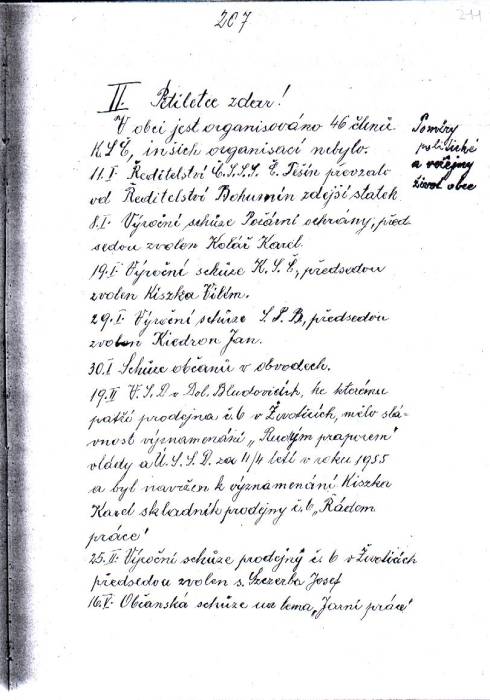 207
211
II. Pětiletce zdar!
V obci jest organisováno 46 členů
KSČ, inších organisací nebylo.
Poměry
politické
a veřejny
život obce
11.I. Ředitelství Č.S.S.S. Č. Těšín převzalo
od Ředitelství Bohumín zdejší statek
8.I. Výroční schůze Požární ochrany, před-
sedou zvolen Kolář Karel.
19.I. Výroční schůze K.S.Č., předsedou
zvolen Kiszka Vilém.
29.I. Výroční schůze S.P.B., předsedou
zvolen Kiedron Jan.
30.I Schůze občanů v obvodech.
19.II V.S.D v Dol. Bludovicích, ke kterému
patří prodejna č.6 v Životicích, mělo slá-
vnost vyznamenání „Rudým praporem"
vlády a Ú.S.S.D. za 4/4 letí v roku 1955
a byl navržen k vyznamenání Kiszka
Karel skladník prodejny č.6 „Řádem
práce"
25.II. Výroční schůze prodejny č. 6 v Životicích
předsedou zvolen s. Szczerba Josef
16.V. Občanská schůze na tema „Jarní práce"